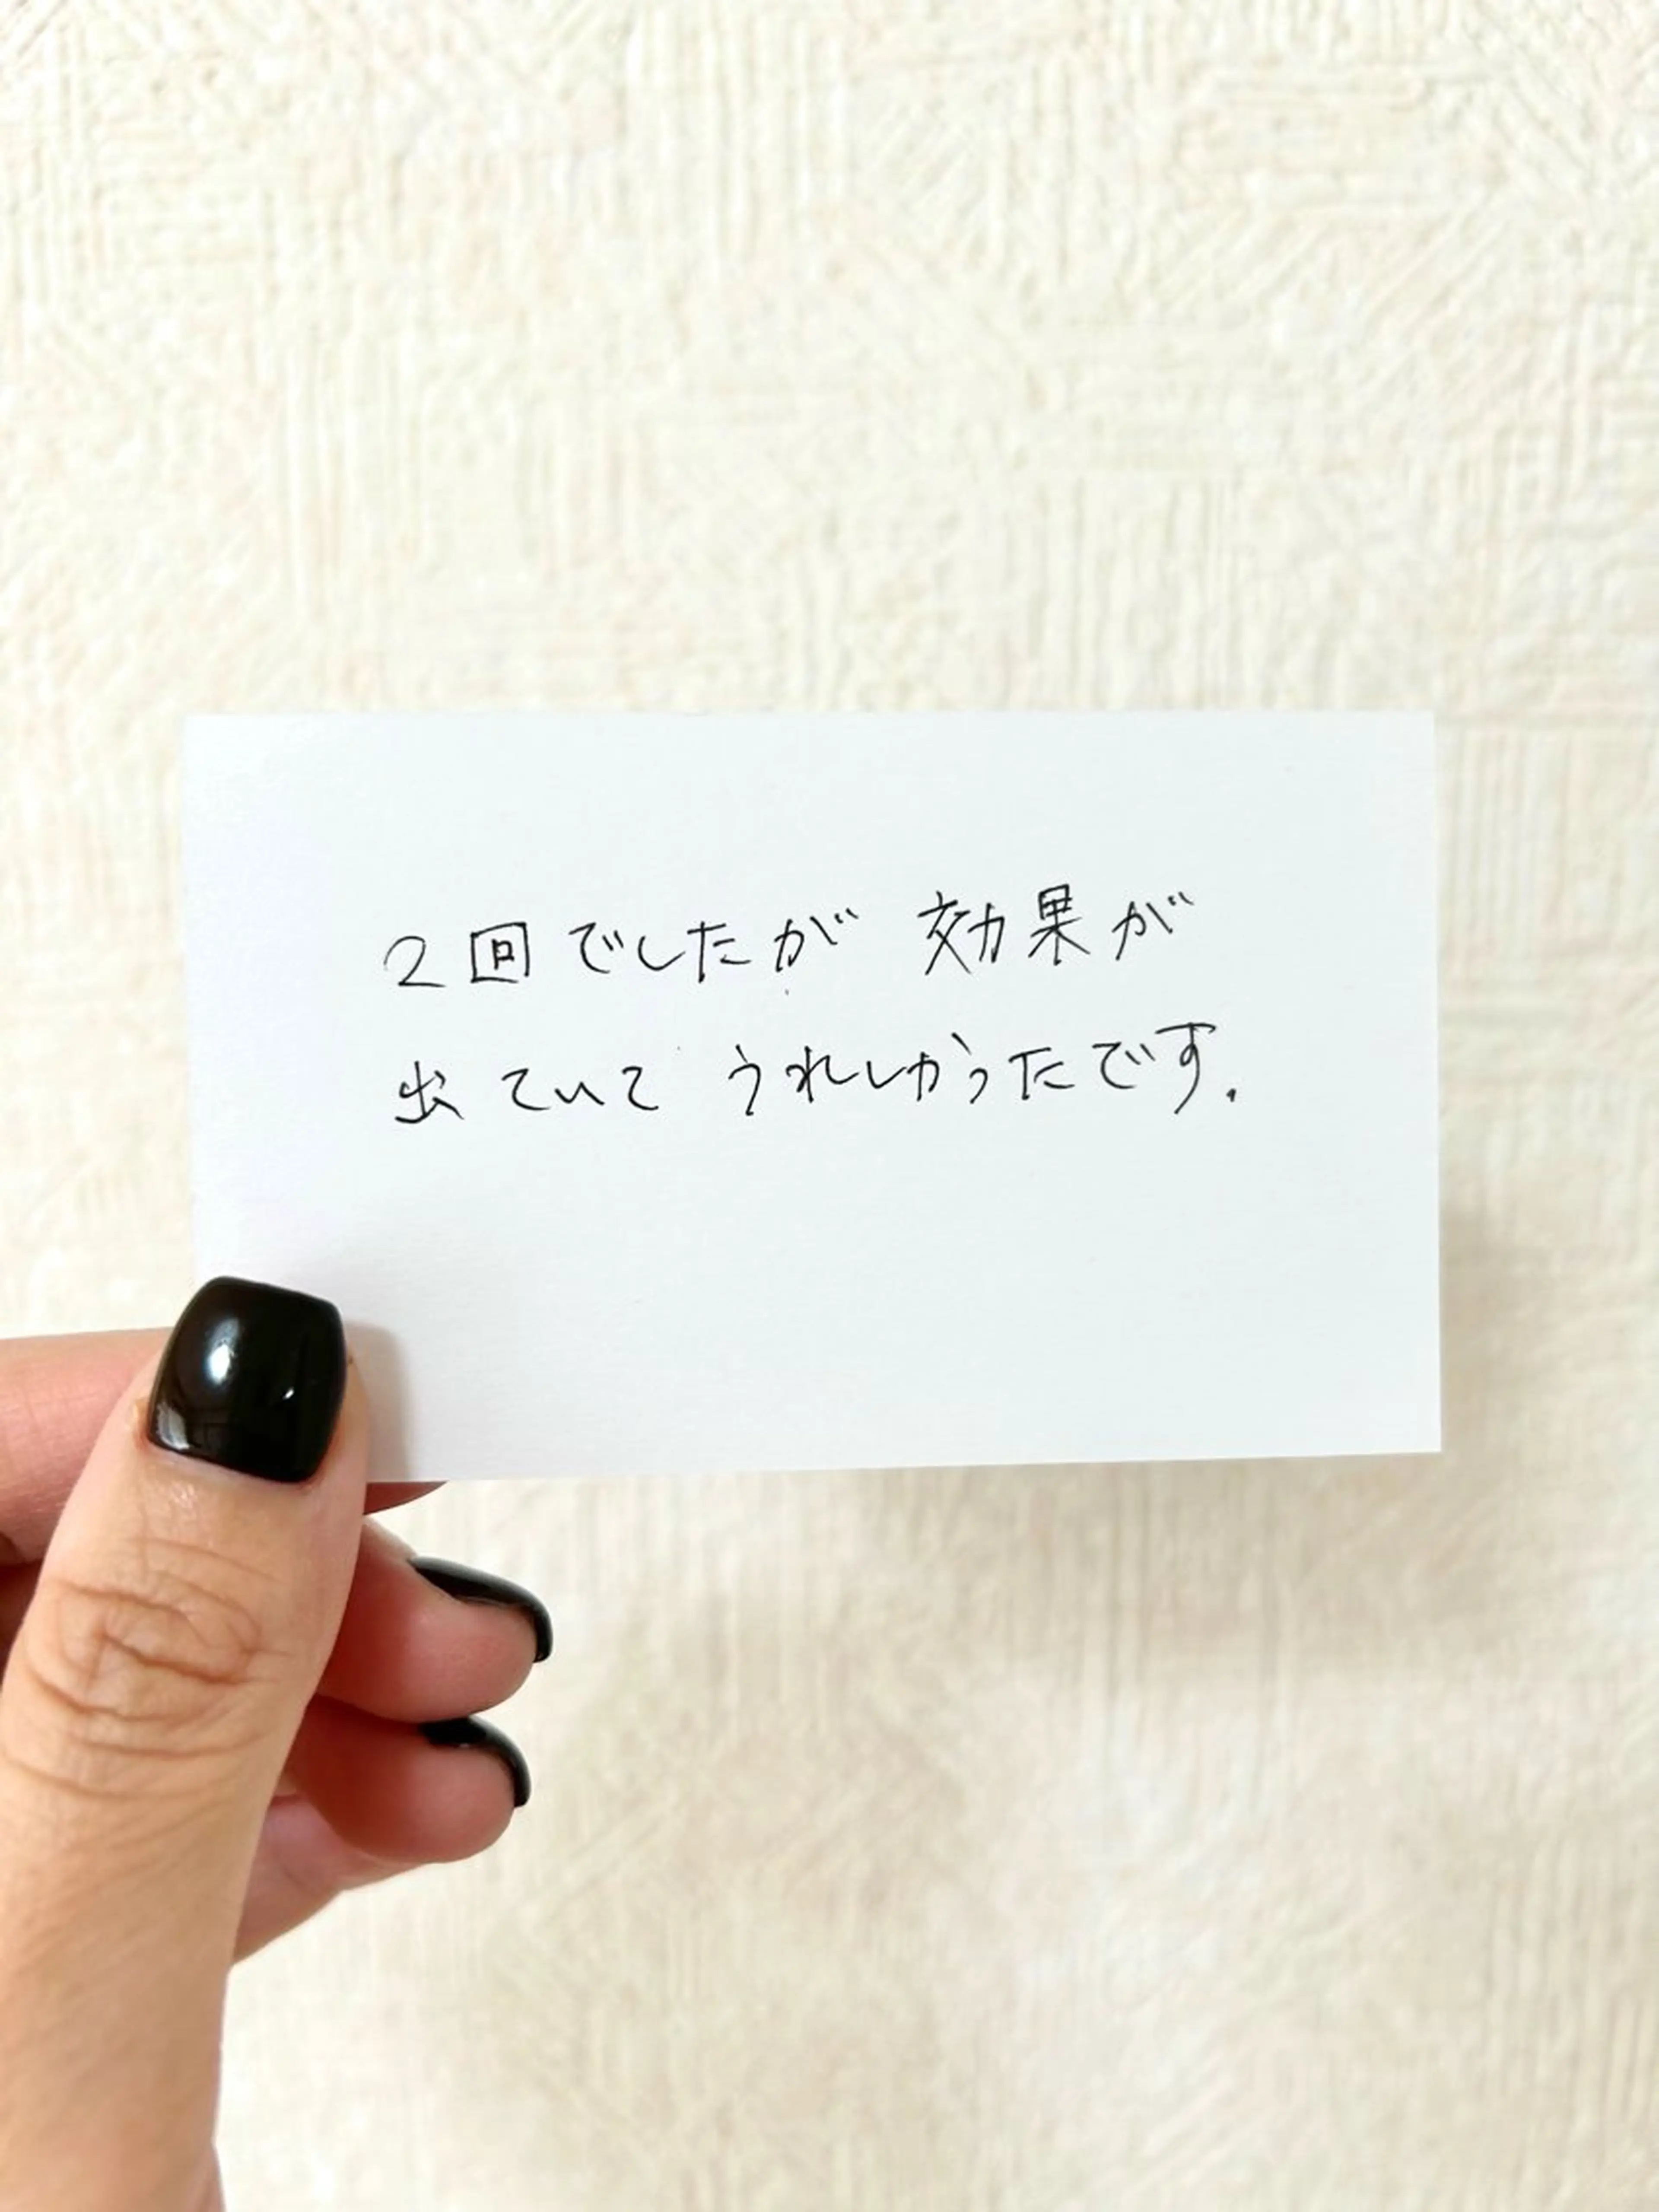 2回でしたが 効果が
出ていて うれしかったです.